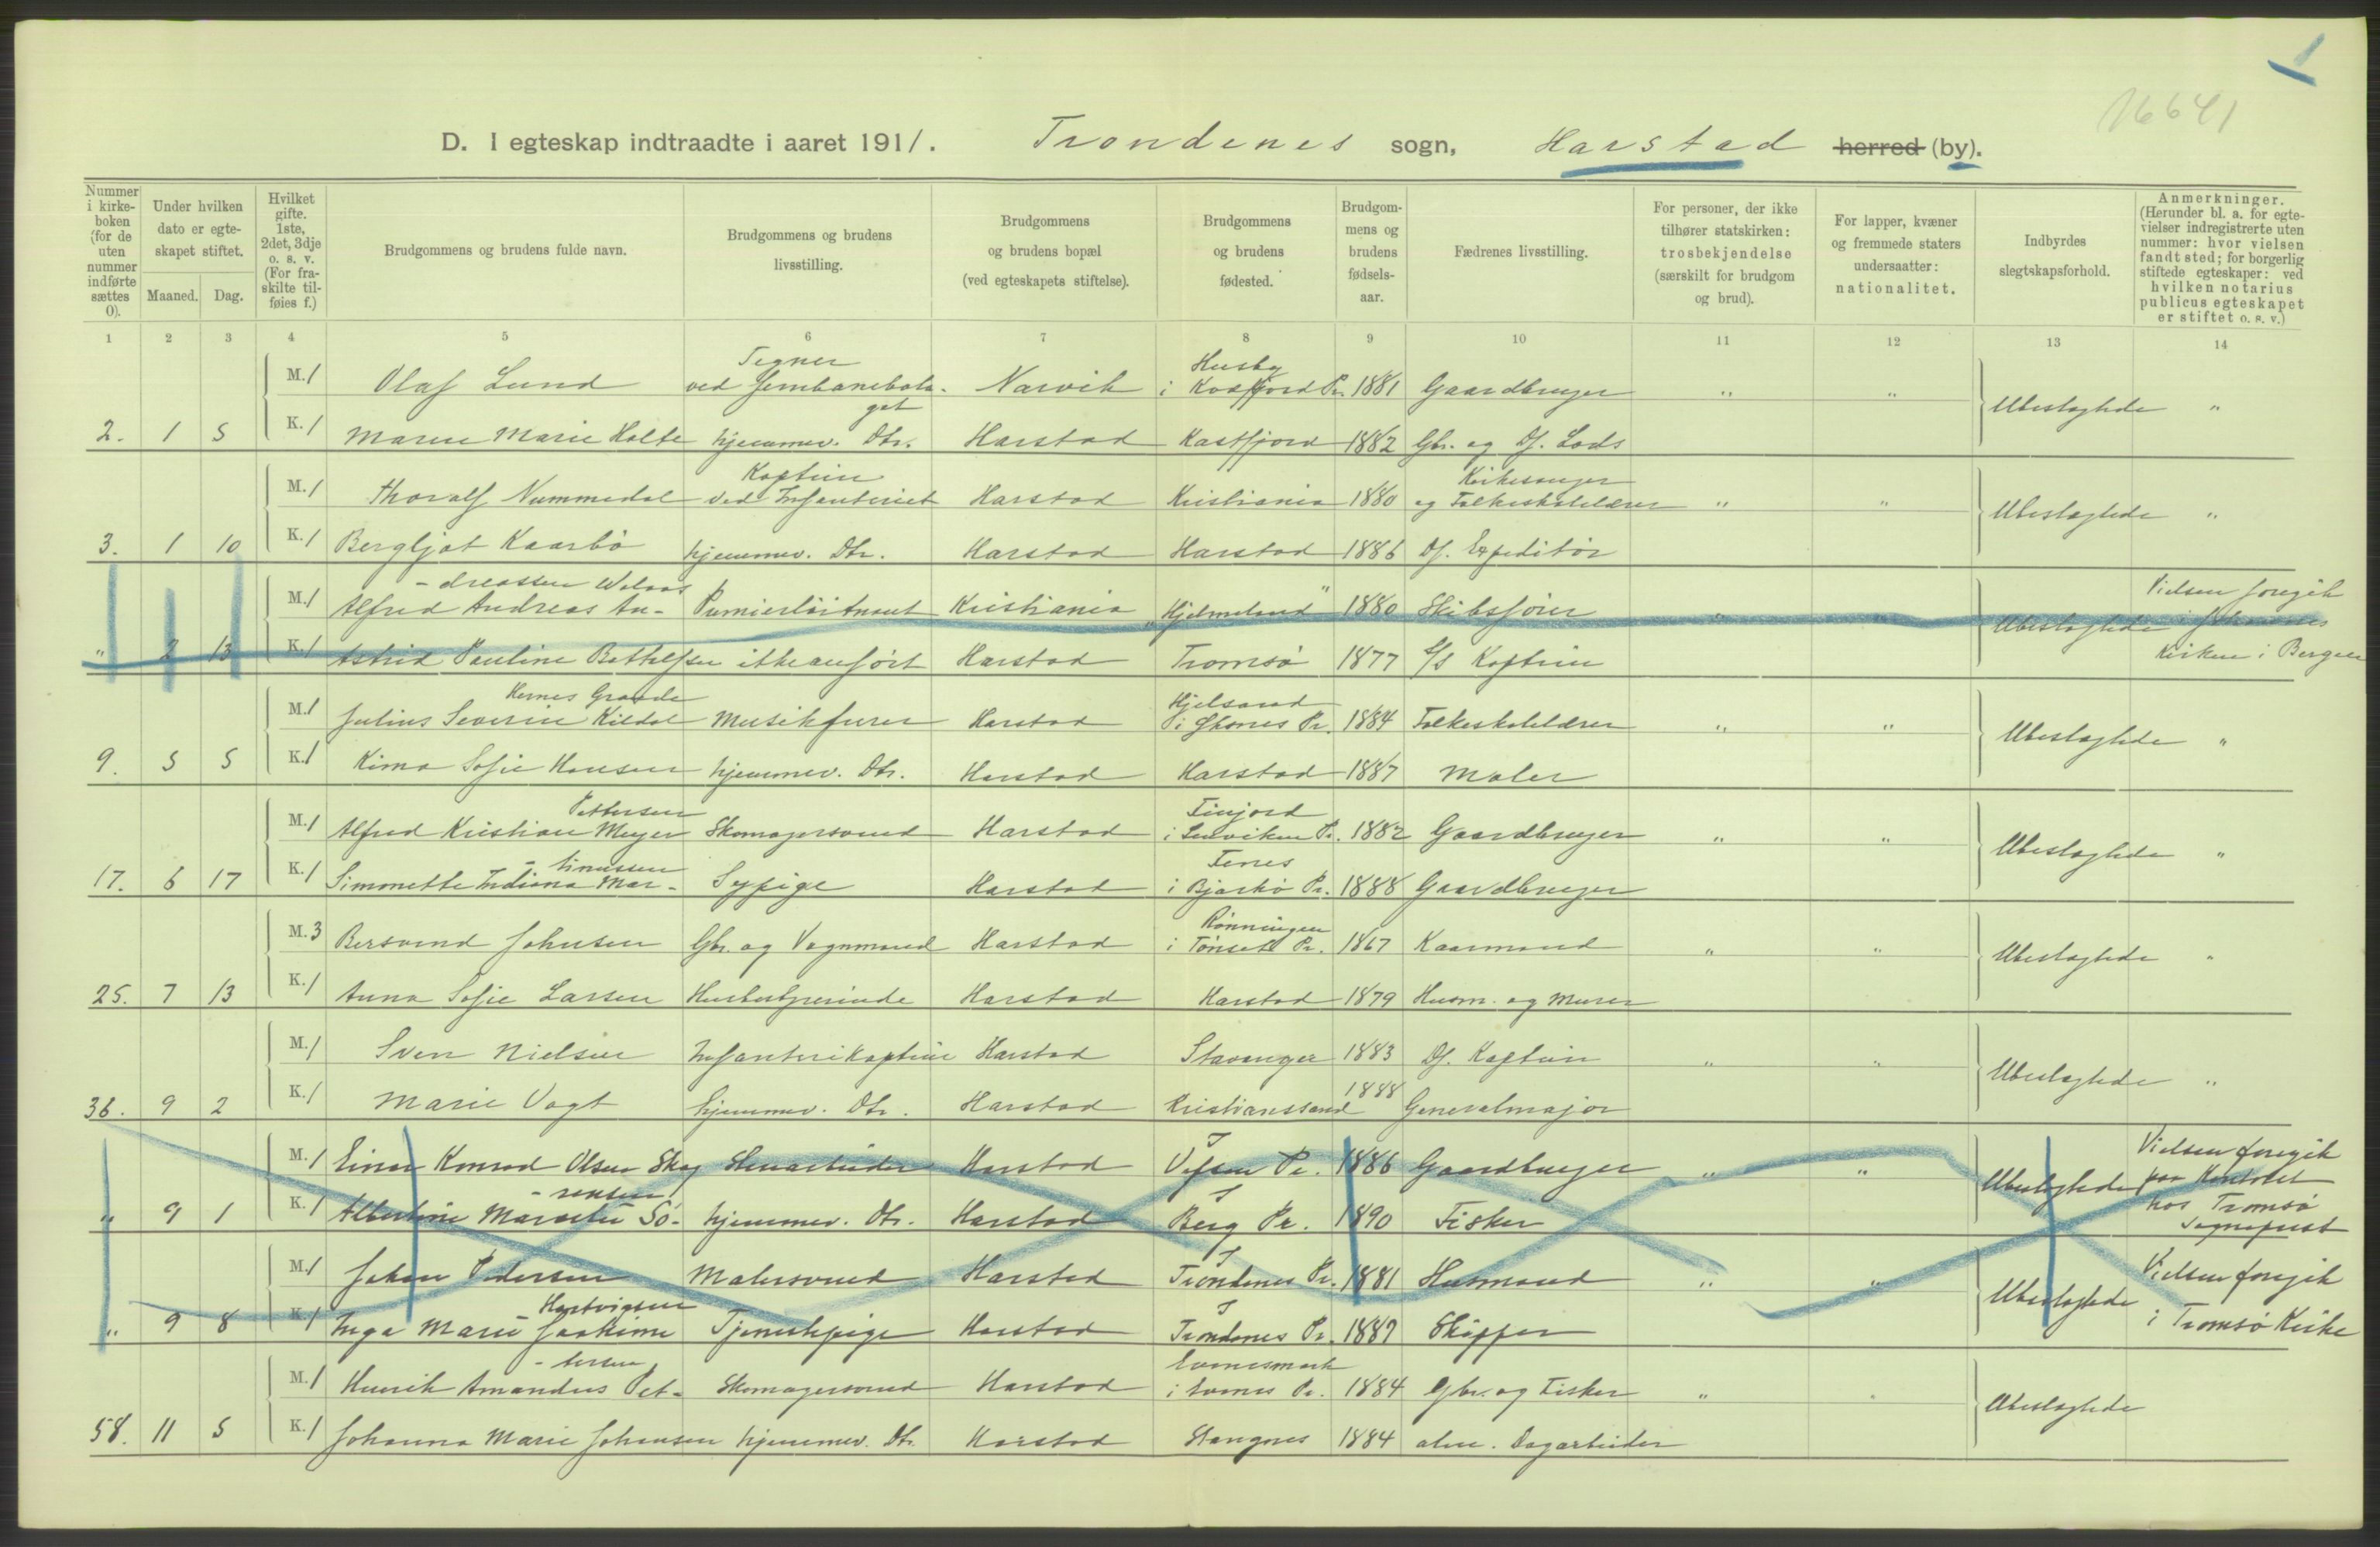 1
16641
D. I egteskap indtraadte i aaret 1911. Trondenes sogn, Harstad herred (by).
Nummer i kirkeboken (for de uten nummer indførte sættes 0).
Under hvilken dato er egteskapet stiftet.
Maaned. Dag.
Hvilket gifte. 1ste, 2det, 3dje o. s. v. (For fraskilte tilføies f.)
Brudgommens og brudens fulde navn.
Brudgommens og brudens livsstilling.
Brudgommens og brudens bopæl (ved egteskapets stiftelse).
Brudgommens og brudens fødested.
Brudgommens og brudens fødselsaar.
Fædrenes livsstilling.
For personer, der ikke tilhører statskirken: trosbekjendelse (særskilt for brudgom og brud).
For lapper, kvæner og fremmede staters undersaatter: nationalitet.
Indbyrdes slegtskapsforhold.
Anmerkninger. (Herunder bl. a. for egtevielser indregistrerte uten nummer: hvor vielsen fandt sted; for borgerlig stiftede egteskaper: ved hvilken notarius publicus egteskapet er stiftet o. s. v.)
1 2 3 4 5 6 7 8 9 10 11 12 13 14
M. 1 Olaf Lund Tegner ved Jernbaneselskapet Narvik Husby i Kvæfjord Pr. 1881 Gaardbruger " " Ubeslægtede "
2. 1 5 K. 1 Maren Marie Holte hjemmev. Dtr. Harstad Kastfjord 1882 Gbr. og Df. Lods
M. 1 Thoralf Nummedal Kaptein ved Infanteriet Harstad Kristiania 1880 Kirkesanger og Folkeskolelærer " " Ubeslægtede "
3. 1 10 K. 1 Bergljot Kaarbø hjemmev. Dtr. Harstad Harstad 1886 Df. Expeditør
M. 1 Alfred Andreas An-dreassen Premierløitnant Kristiania "Hjelmeland" 1880 Skibsfører " " Ubeslægtede Vielsen foregik i Johannes Kirken i Bergen
" 2 13 K. 1 Astrid Pauline Bothelsen ikke anført Harstad Tromsø 1877 Kaptein
M. 1 Julius Severin Kildal Musikfurer Harstad i Pr. 1884 Folkeskolelærer " " Ubeslægtede "
9. 5 5 K. 1 Kima Sofie Hansen hjemmev. Dtr. Harstad Harstad 1887 Maler
M. 1 Alfred Kristian Meyer Pettersen Skomagersvend Harstad Finjord i Lenviken Pr. 1882 Gaardbruger " " Ubeslægtede "
17. 6 17 K. 1 Simonette Indiana Mar-tinussen Sypige Harstad Fenes i Bjarkø Pr. 1888 Gaardbruger
M. 3 Bersvend Johnsen Gbr. og Vognmand Harstad Rønningen i Tønset Pr. 1867 Kaarmand " " Ubeslægtede "
25. 7 13 K. 1 Anna Sofie Larsen Husbestyrerinde Harstad Harstad 1879 Husm. og Murer
M. 1 Sven Nielsen Infanterikaptein Harstad Stavanger 1883 Df. Kaptein " " Ubeslægtede "
36. 9 2 K. 1 Marie Vogt hjemmev. Dtr. Harstad Kristianssand 1888 Generalmajor
M. 1 Einar Konrad Olsen Skog Harstad I Vefsen Pr. 1886 Gaardbruger " " Ubeslægtede Vielsen foregik paa Kontoret hos Tromsø Sogneprest
" 9 1 K. 1 Albertine Sø-rensen hjemmev. Dtr. Harstad I Berg Pr. 1890 Fisker
M. 1 Johan Pedersen Malersvend Harstad I Trondenes Pr. 1881 Husmand " " Ubeslægtede Vielsen foregik i Tromsø Kirke
" 9 8 K. 1 Inga Marie Joakime Hartvigsen Tjenestepige Harstad I Trondenes Pr. 1887 Skipper
M. 1 Henrik Amandus Pet-tersen Skomagersvend Harstad Evenesmark i Evenes Pr. 1884 Gbr. og Fisker " " Ubeslægtede
58. 11 5 K. 1 Johanna Marie Johansen hjemmev. Dtr. Harstad Stangnes 1884 alm. Dagarbeider